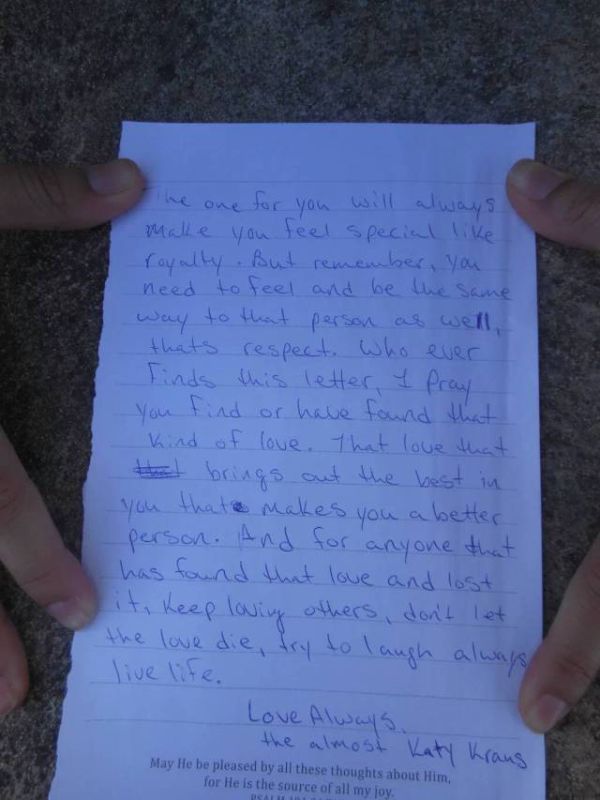 The one for you will always
make you feel special like
royalty. But remember, you
need to feel and be the same
way to that person as well,
thats respect. Who ever
finds this letter, I pray
you find or have found that
kind of love. That love that
brings out the best in
you that makes you a better
person. And for anyone that
has found that love and lost
it, keep loving others, don't let
the love die, try to laugh always
live life.
Love Always,
the almost Katy Kraus
May He be pleased by all these thoughts about Him,
for He is the source of all my joy.